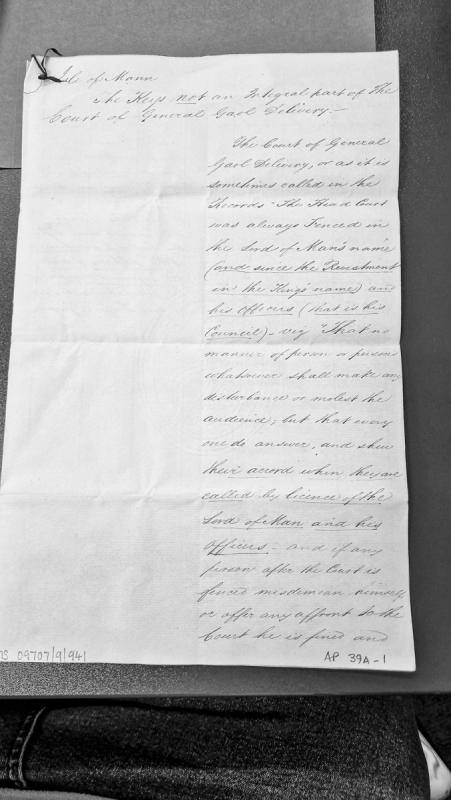 Isle of Mann
The Keys not an Integral part of The
Court of General Gaol Delivery.—
The Court of General
Gaol Delivery, or as it is
sometimes called in the
Records "The Head Court
was always Fenced in
the Lord of Man's name
(and since the Revestment
in the King's name) and
his officers (that is his
Council) - viz "That no
manner of person or persons
whatsoever shall make any
disturbance or molest the
audience; but that every
one do answer, and shew
their accord when they are
called by licence of the
Lord of Man and his
officers - and if any
person after the Court is
fenced misdemean himself
or offer any affront to the
Court he is fined and
MS 09707/9/941
AP 39A-1